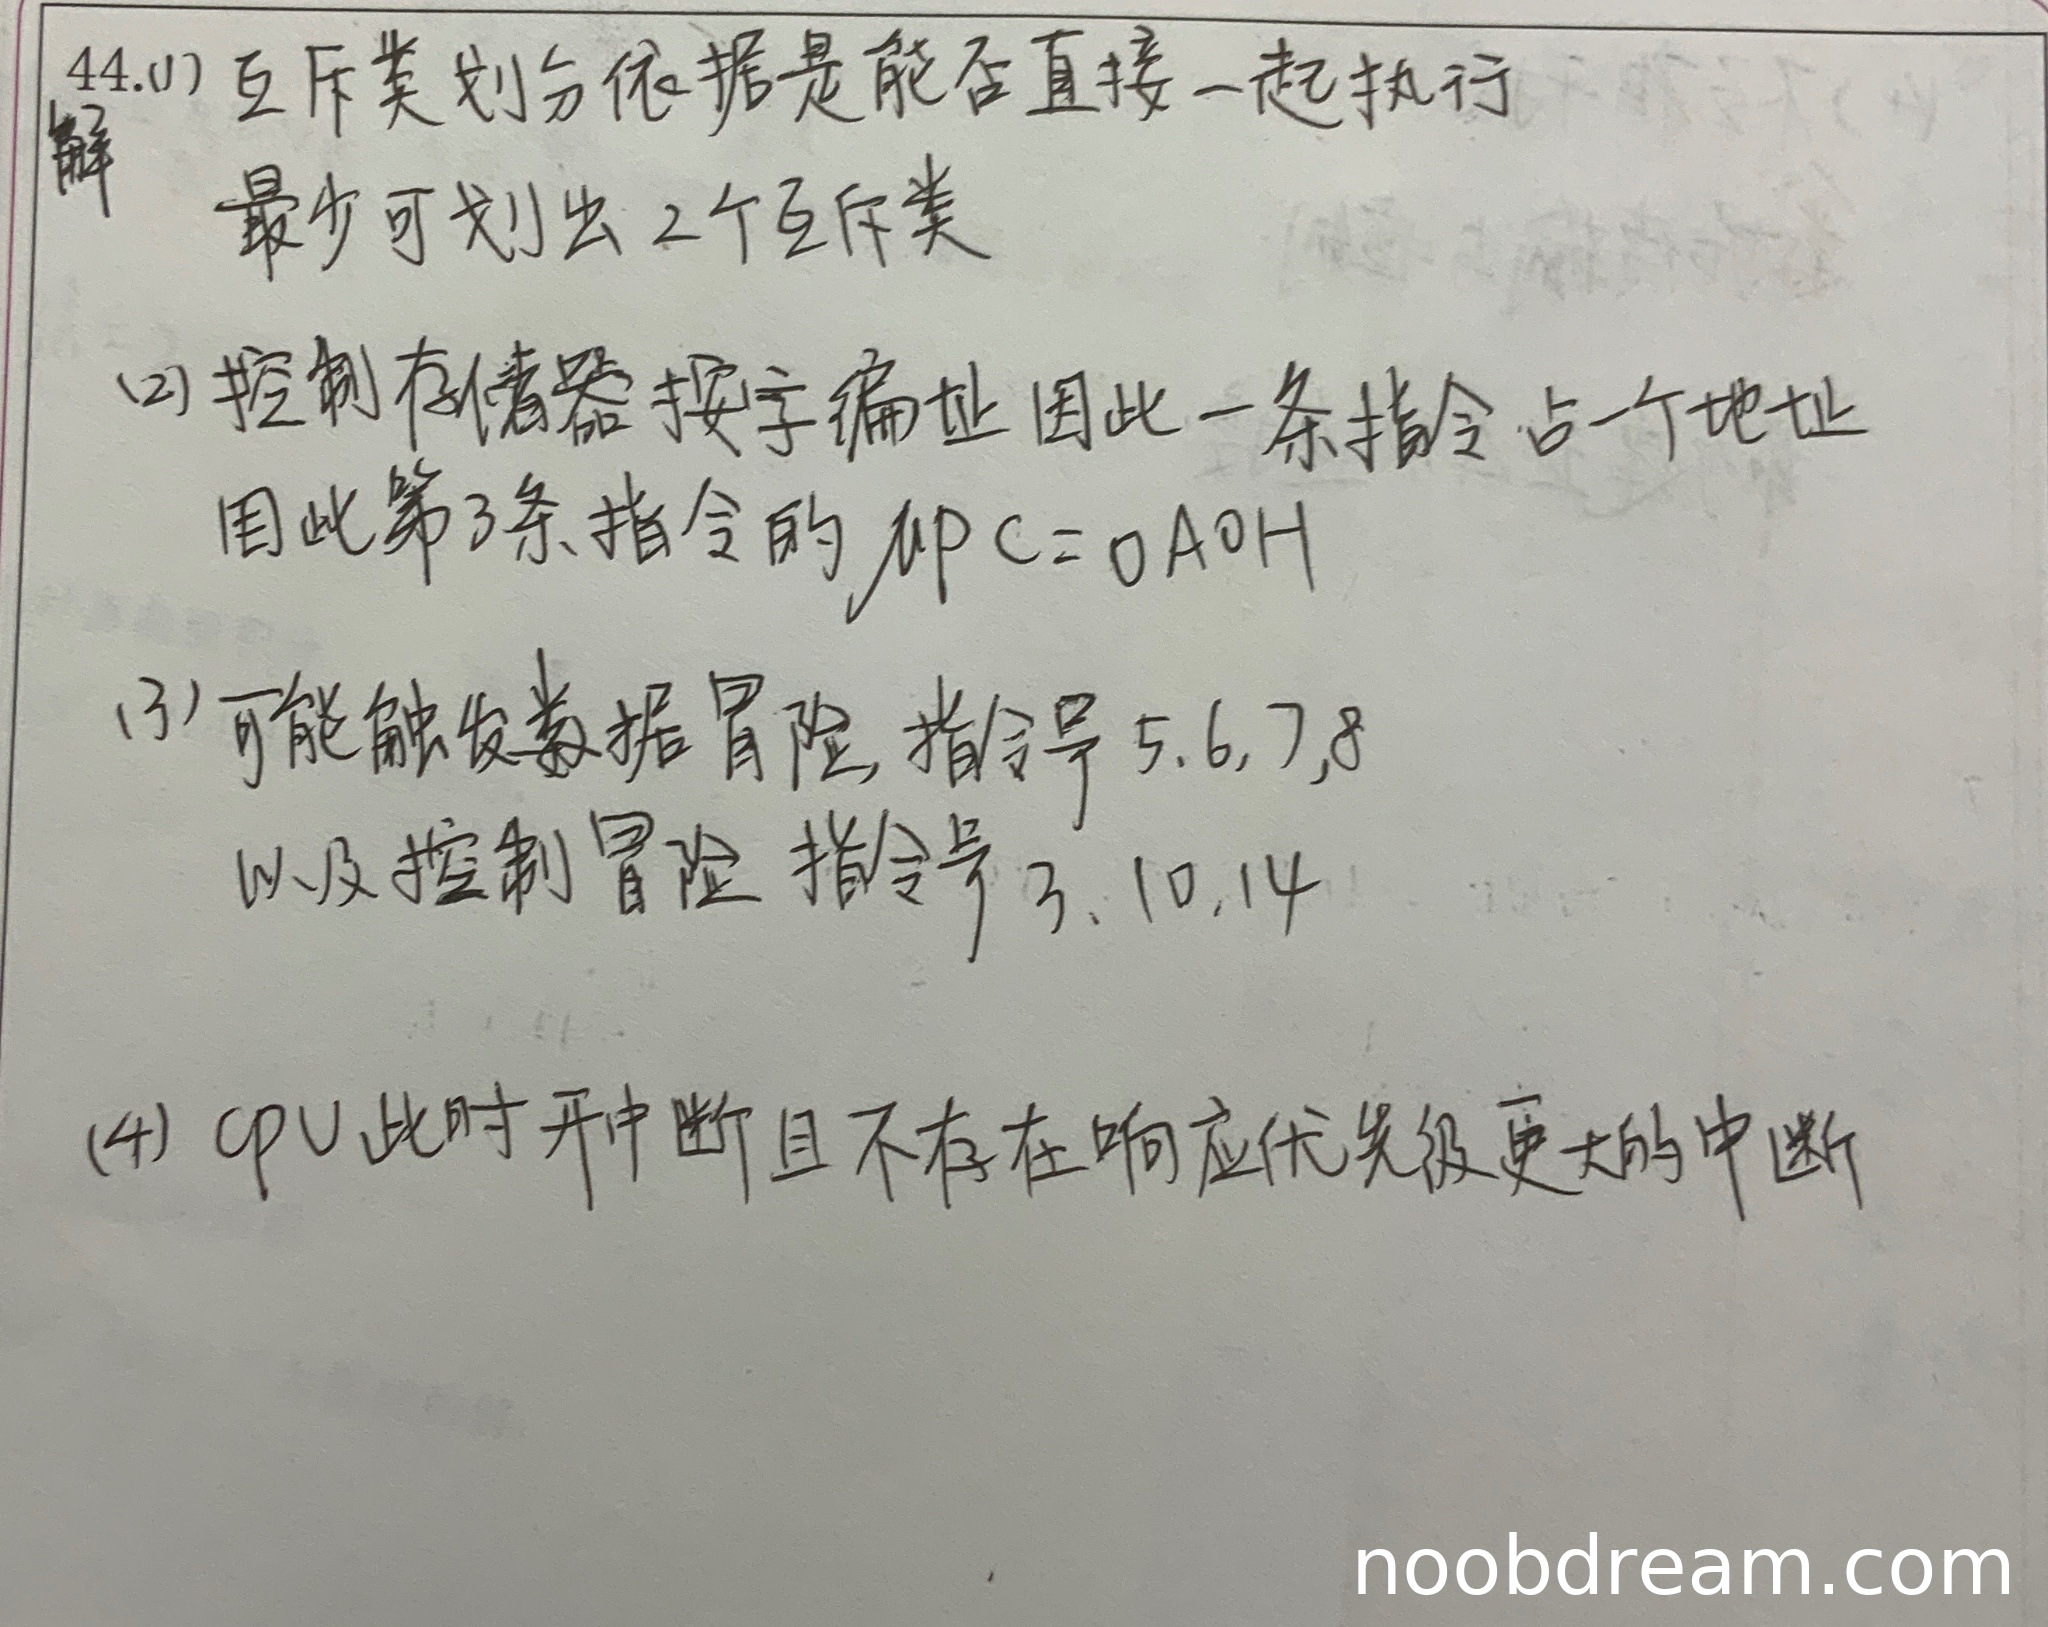 44.(1) 互斥类划分依据是能否直接一起执行
解
最少可划出2个互斥类
(2) 控制存储器按字编址因此一条指令占一个地址
因此第3条指令的μPC=0A0H
(3) 可能触发数据冒险,指令号5.6,7,8
以及控制冒险 指令号3、10,14
(4) CPU此时开中断且不存在响应优先级更大的中断
noobdream.com